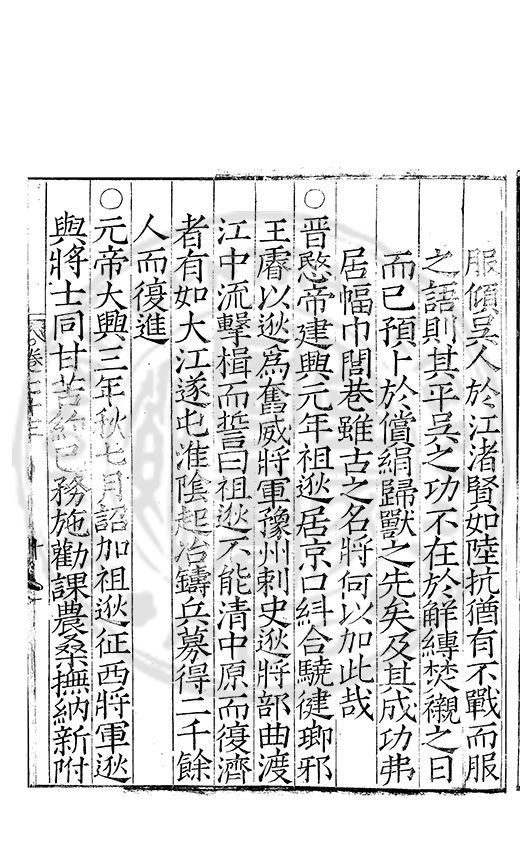 服傾吳人於江渚賢如陸抗猶有不戰而服
之語則其平吳之功不在於解縛焚櫬之日
而已預卜於償絹歸獸之先矣及其成功弗
居幅巾閭巷雖古之名將何以加此哉
○晉愍帝建興元年祖逖居京口糾合驍健瑯邪
王睿以逖爲奮威將軍豫州刺史逖將部曲渡
江中流擊楫而誓曰祖逖不能清中原而復濟
者有如大江遂屯淮陰起冶鑄兵募得二千餘
人而復進
○元帝大興三年秋七月詔加祖逖征西將軍逖
與將士同甘苦約己務施勸課農桑撫納新附